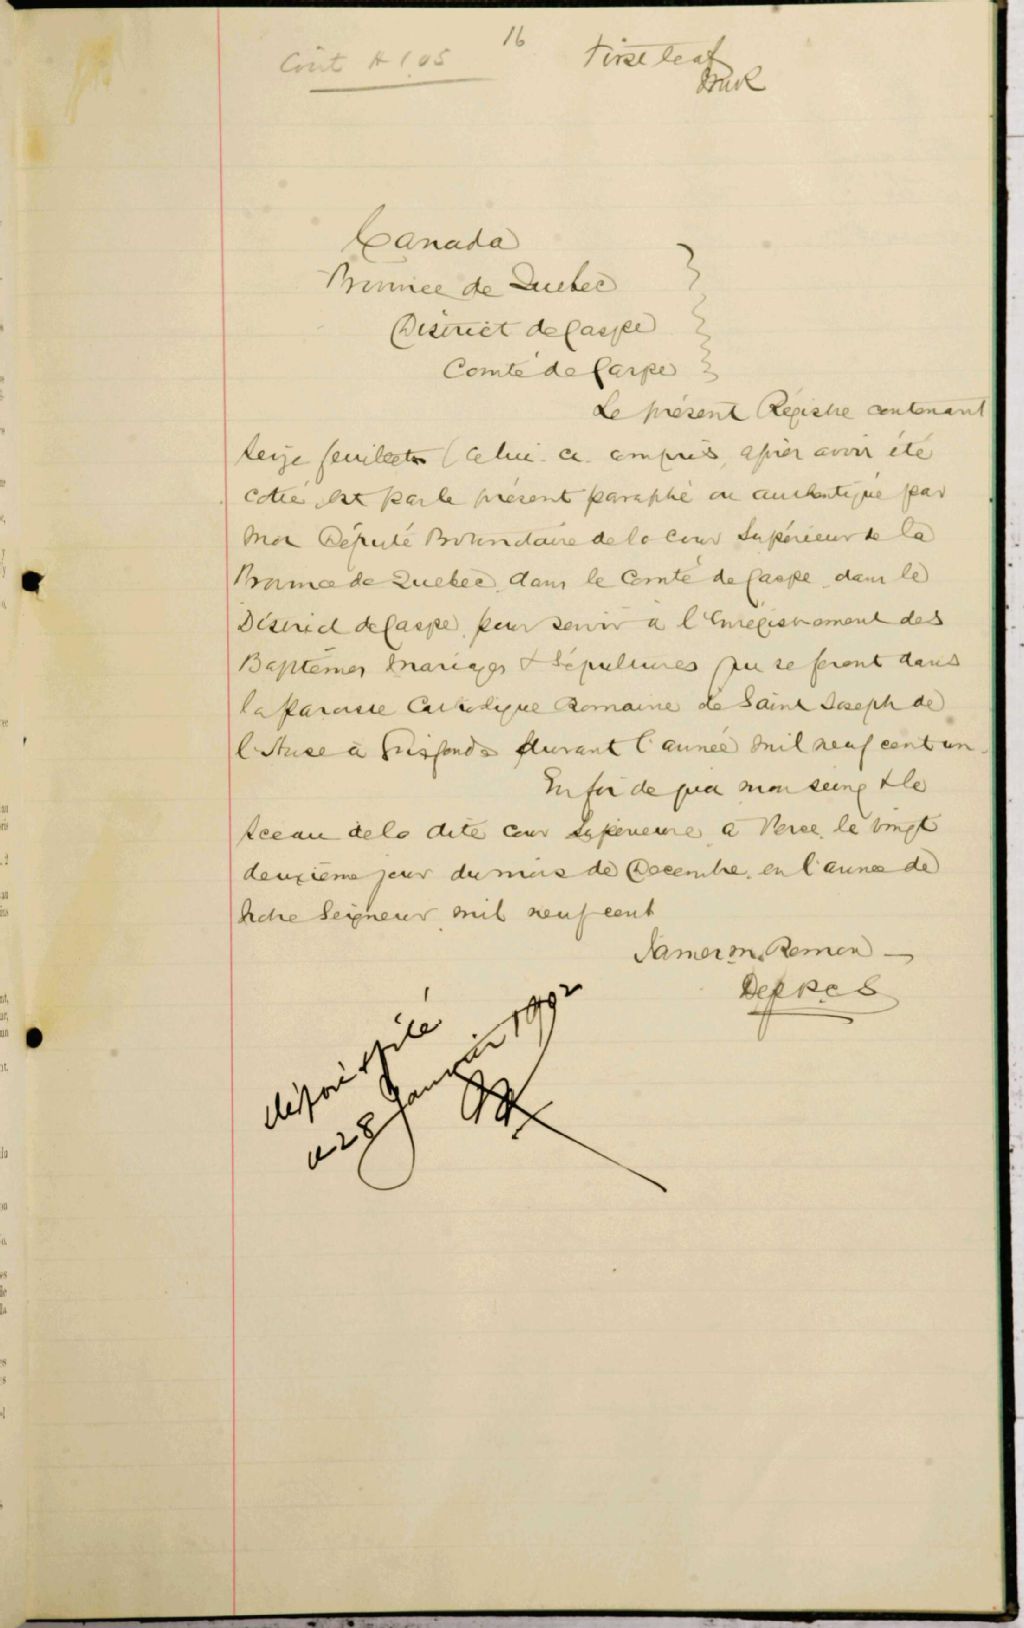 16
Coût $ 1.05
First leaf
JmR
Canada
Province de Quebec
District de Gaspe
Comté de Gaspe
Le présent Régistre contenant
seize feuillets (celui-ci compris, après avoir été
coté est par le présent paraphé ou authentiqué par
moi Député Protonotaire de la Cour Supérieur de la
Province de Quebec, dans le Comté de Gaspe, dans le
District de Gaspe, pour servir à l'Enregistrement des
Baptêmes Mariages & Sépultures qui se feront dans
la Paroisse Catholique Romaine de Saint Joseph de
l'Anse à Grisfonds durant l'année mil neuf cent un.
En foi de quoi mon seing & le
sceau de la dite cour Supérieure, à Perce, le vingt
deuxième jour du mois de Decembre, en l'année de
Notre Seigneur, mil neuf cent
James M. Remon
Dep P.C.S
déposé & filé
le 28 Janvier 1902